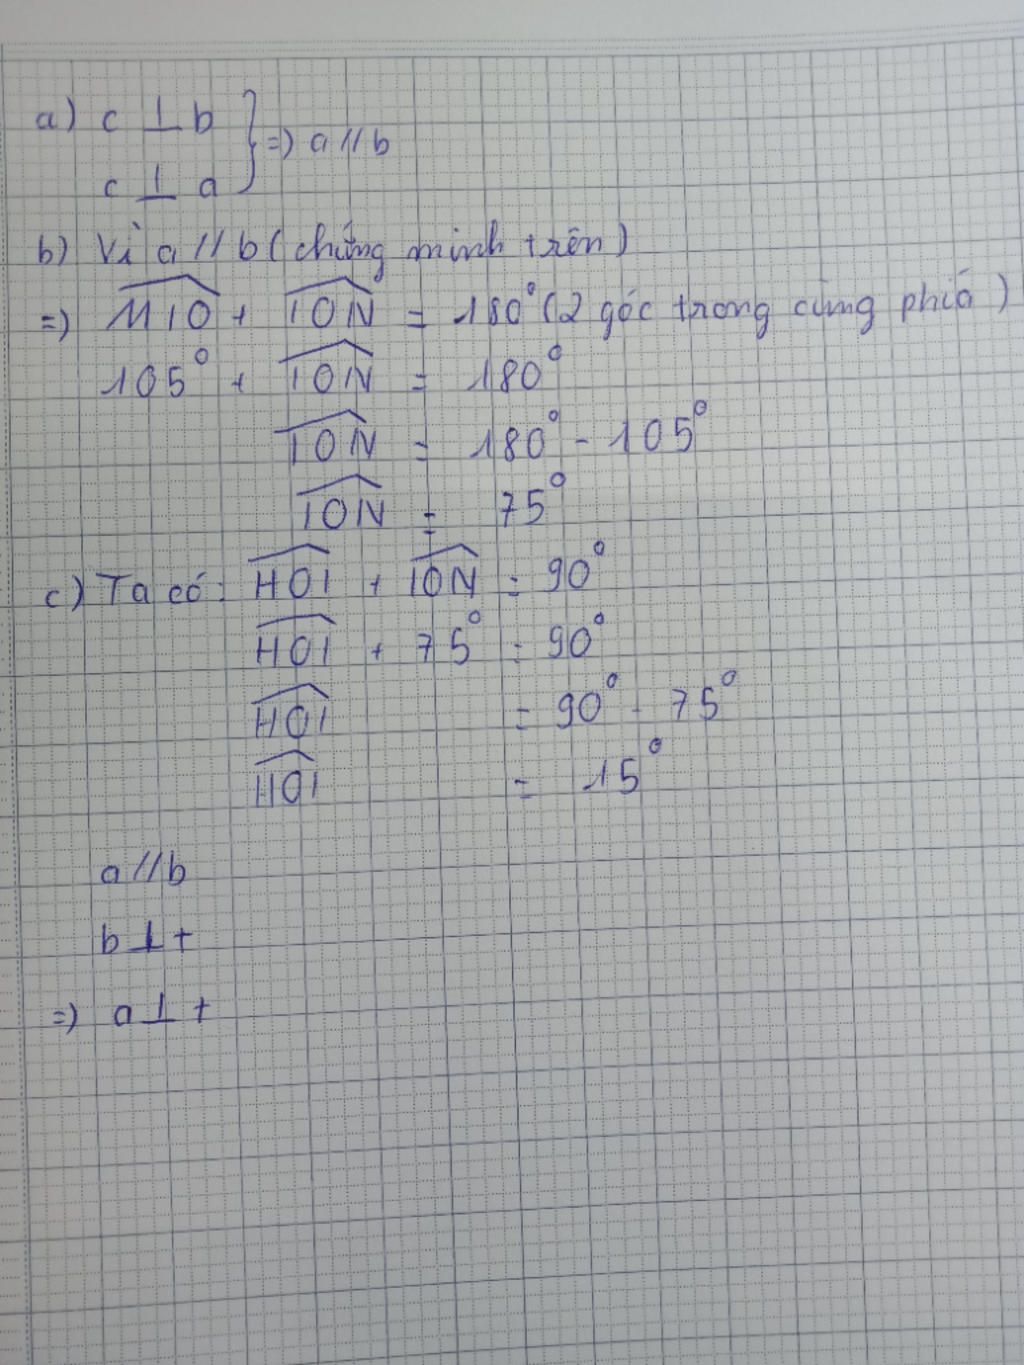 a) c ⊥ b
c ⊥ a } => a // b
b) Vì a // b (chứng minh trên)
=) \widehat{MIO} + \widehat{ION} = 180° (2 góc trong cùng phía)
105° + \widehat{ION} = 180°
\widehat{ION} = 180° - 105°
\widehat{ION} = 75°
c) Ta có: \widehat{HOI} + \widehat{ION} = 90°
\widehat{HOI} + 75° = 90°
\widehat{HOI} = 90° - 75°
\widehat{HOI} = 15°
a // b
b ⊥ t
=) a ⊥ t